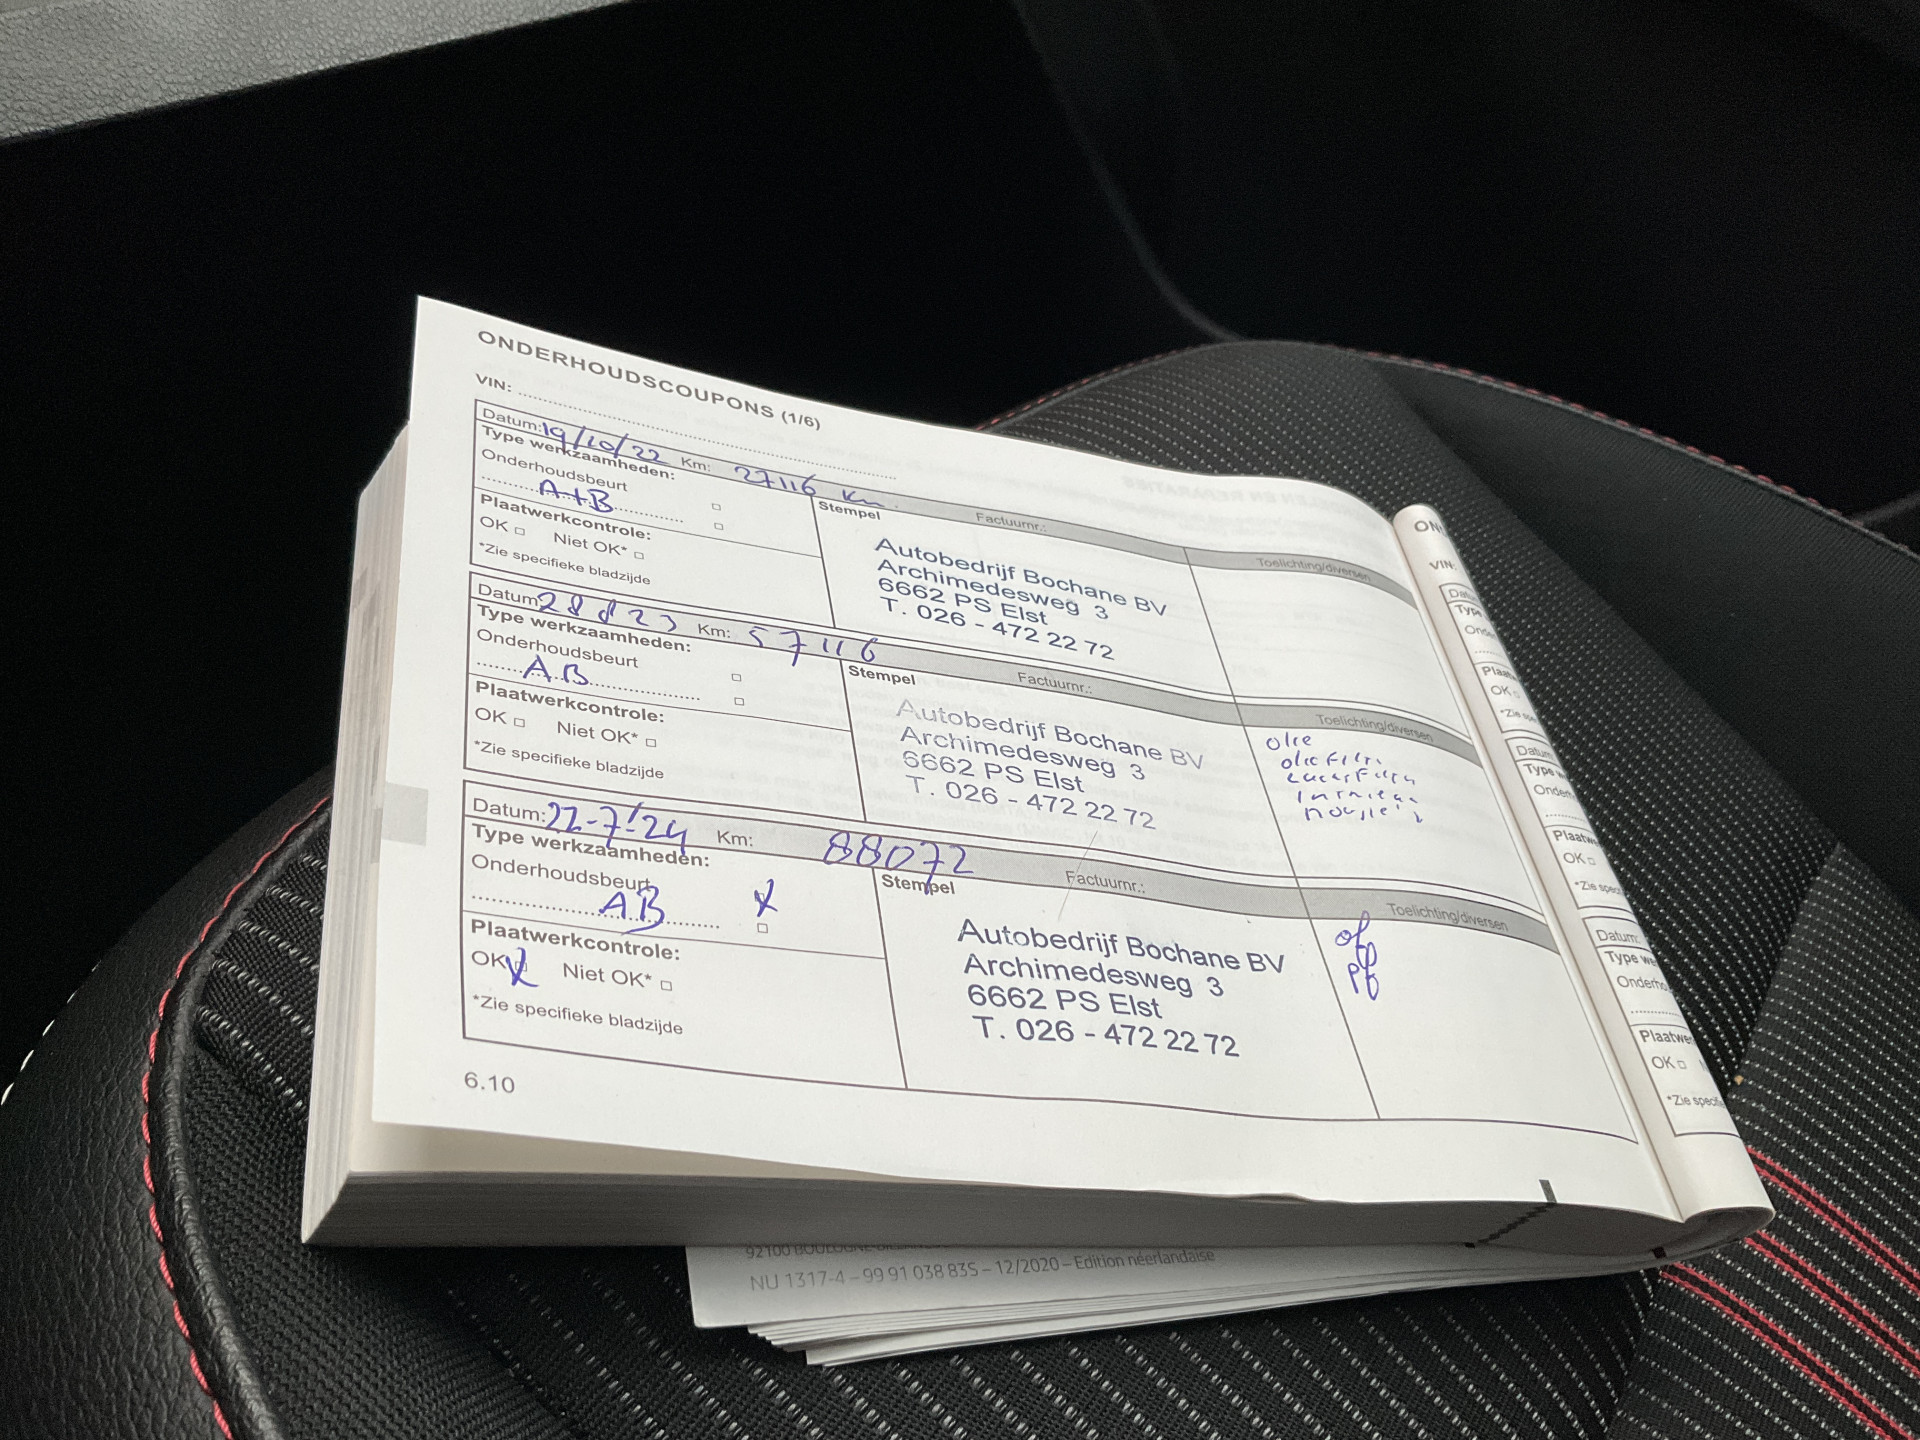 ONDERHOUDSCOUPONS (1/6)
VIN:
Datum: 19/10/22 Km: 27116 Km.
Type werkzaamheden:
Onderhoudsbeurt
A+B
Plaatwerkcontrole:
OK □ Niet OK* □
*Zie specifieke bladzijde
Stempel Factuurnr.: Toelichting/diversen
Autobedrijf Bochane BV
Archimedesweg 3
6662 PS Elst
T. 026 - 472 22 72
Datum: 28 8 23 Km: 57116
Type werkzaamheden:
Onderhoudsbeurt
A B
Plaatwerkcontrole:
OK □ Niet OK* □
*Zie specifieke bladzijde
Stempel Factuurnr.: Toelichting/diversen
Autobedrijf Bochane BV
Archimedesweg 3
6662 PS Elst
T. 026 - 472 22 72
olie
Datum: 22-7-'24 Km: 88072
Type werkzaamheden:
Onderhoudsbeurt
AB X
Plaatwerkcontrole:
OK X Niet OK* □
*Zie specifieke bladzijde
Stempel Factuurnr.: Toelichting/diversen
Autobedrijf Bochane BV
Archimedesweg 3
6662 PS Elst
T. 026 - 472 22 72
of
pf
6.10
VIN:
OK □
OK □
Datum:
OK □
92100
NU 1317-4 – 99 91 038 83S – 12/2020 – Edition néerlandaise